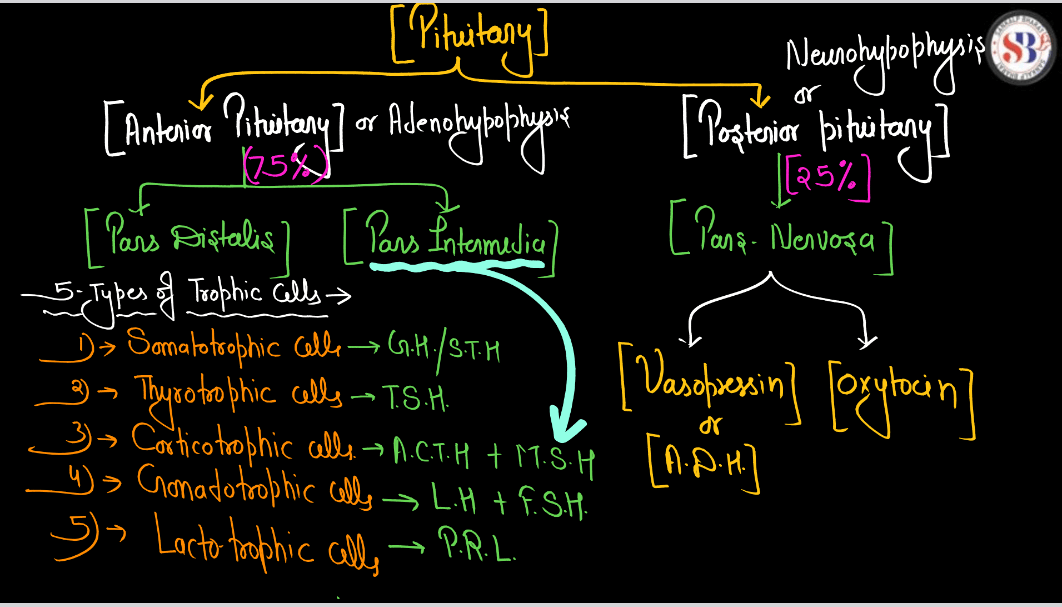 [Pituitary]
[Anterior Pituitary] or Adenohypophysis
(75%)
[Pars Distalis]
[Pars Intermedia]
5-Types of Trophic Cells →
1) → Somatotrophic cells → G.H./S.T.H
2) → Thyrotrophic cells → T.S.H.
3) → Corticotrophic cells → A.C.T.H + M.S.H
4) → Gonadotrophic cells → L.H + F.S.H.
5) → Lactotrophic cells → P.R.L.
Neurohypophysis
or
[Posterior pituitary]
[25%]
[Pars-Nervosa]
[Vasopressin]
or
[A.D.H.]
[Oxytocin]
SB